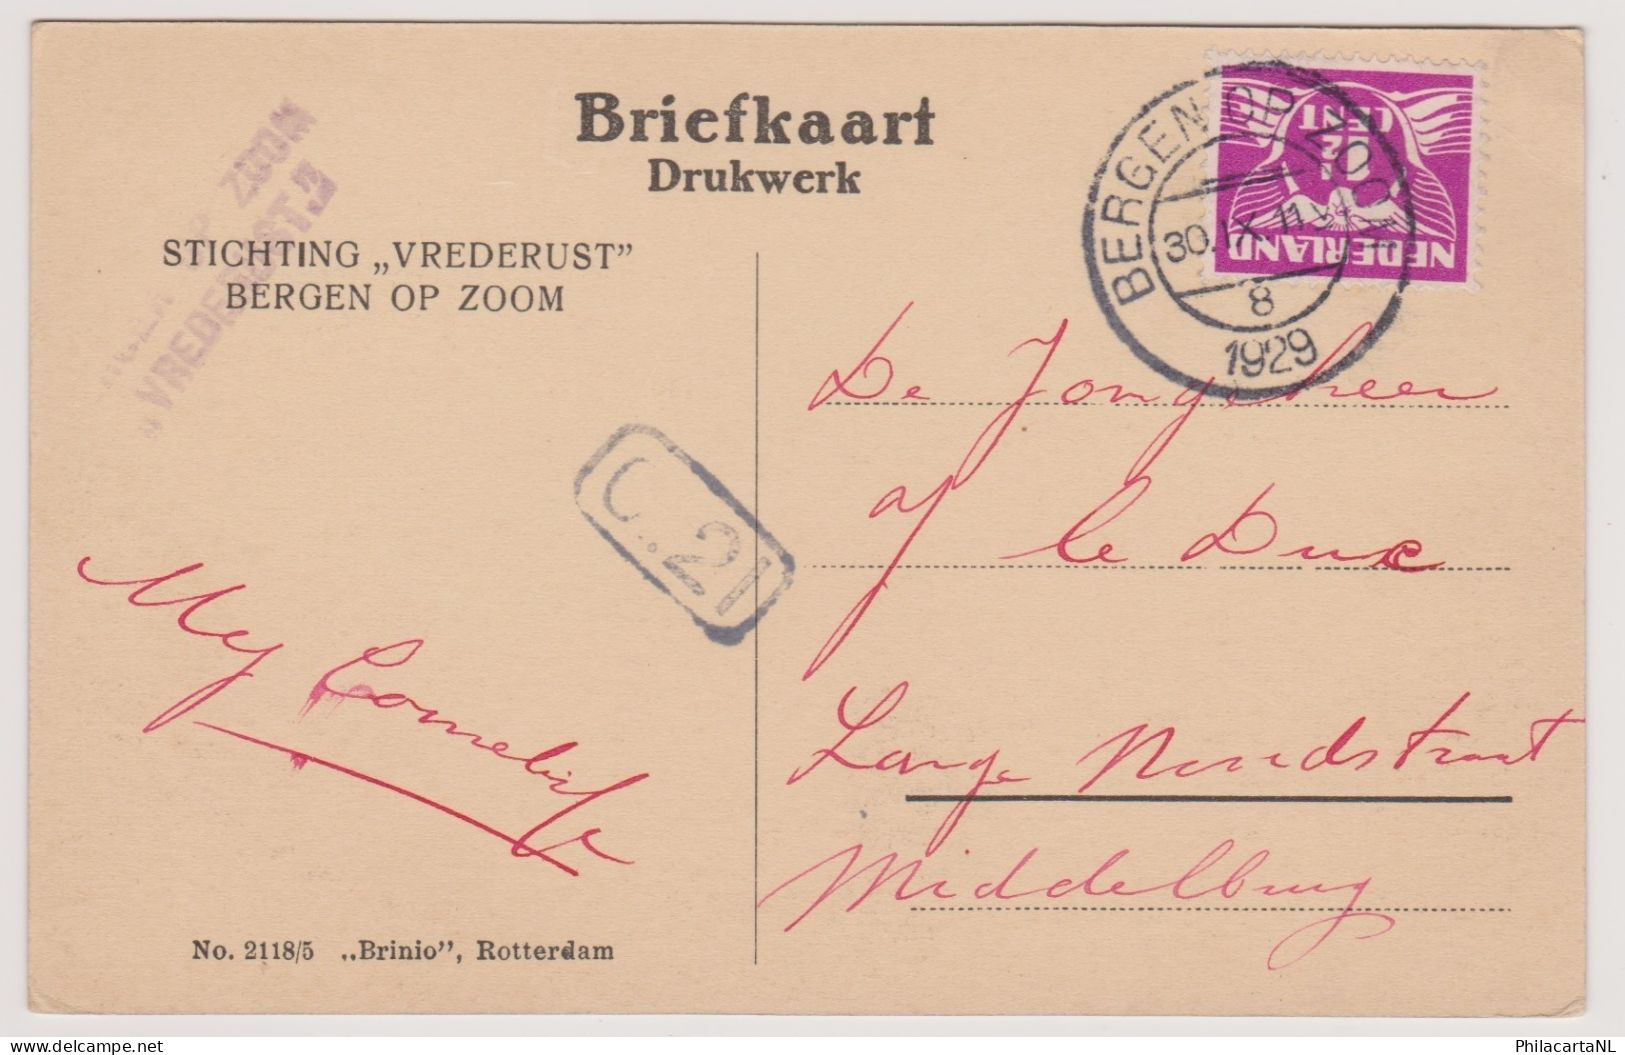 Briefkaart
Drukwerk
STICHTING „VREDERUST”
BERGEN OP ZOOM
ZOOM
VREDERUST
BERGEN OP ZOOM
30.IX 11V
8
1929
1½
CENT
NEDERLAND
C..21
De Jongeheer
le Duc
Lange Noordstraat
Middelburg
No. 2118/5 „Brinio”, Rotterdam
PhilacartaNL